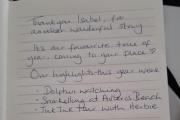 Thankyou, Isabel, for
another wonderful stay
Its our favourite time of
year, coming to your place ♡
Our highlights this year were
• Dolphin watching
• Snorkelling at Beach
• Tuk Tuk Tour with